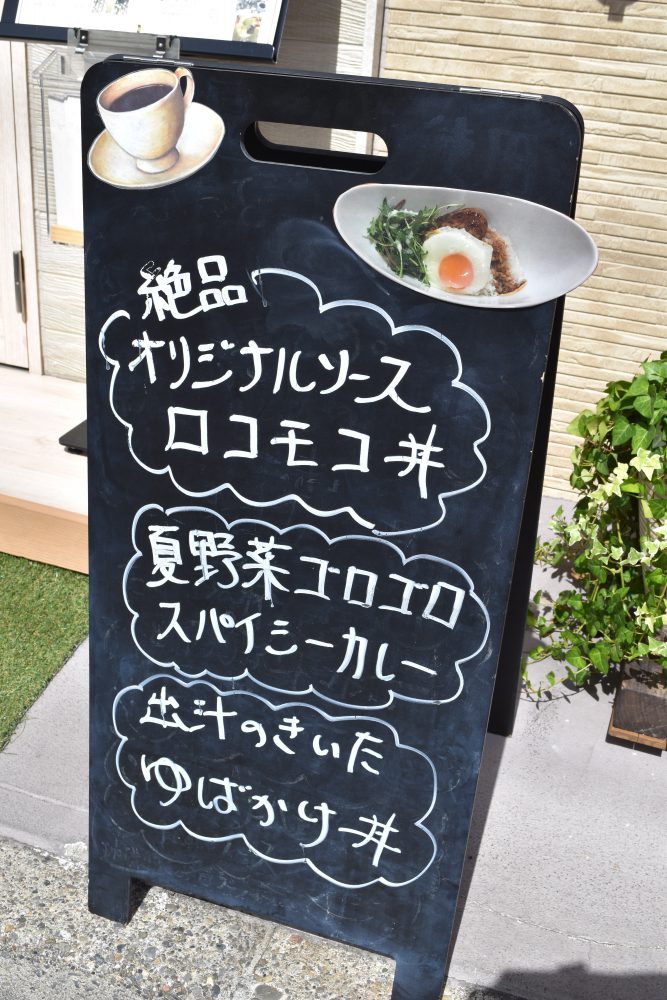 絶品
オリジナルソース
ロコモコ丼
夏野菜ゴロゴロ
スパイシーカレー
出汁のきいた
ゆばかけ丼